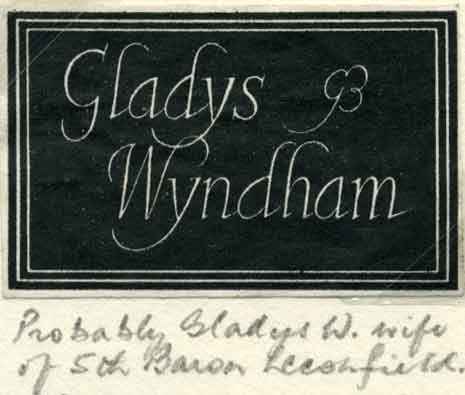 Gladys
Wyndham
Probably Gladys W. wife
of 5th Baron Leconfield.